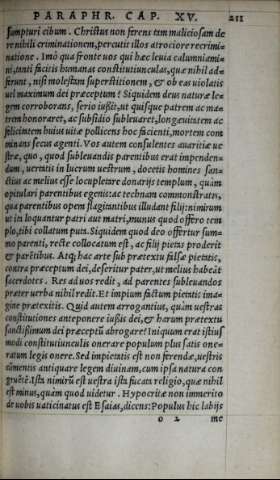 PARAPHR. CAP. XV. 211
sumpturi cibum. Christus non ferens tam maliciosam de
re nihili criminationem, percutit illos atrociore recrimi=
natione. Imò qua fronte uos qui hæc leuia calumniami=
ni, tanti facitis humanas constitutiunculas, quæ nihil ad=
ferunt, nisi molestam superstitionem, & ob eas uiolatis
uel maximum dei præceptum? Siquidem deus naturæ le=
gem corroborans, serio iußit, ut quisque patrem ac ma=
trem honoraret, ac subsidio subleuaret, longæuitatem ac
felicitatem huius uitæ pollicens hoc facienti, mortem com
minans secus agenti. Vos autem consulentes auaritiæ ue
stræ, quo, quod subleuandis parentibus erat impenden=
dum, uertatis in lucrum uestrum, docetis homines san=
ctius ac melius esse locupletare donarijs templum, quàm
opitulari parentibus egenis: ac technam commonstratis,
qua parentibus opem flagitantibus illudant filij: nimirum
ut in loquantur patri aut matri, munus quod offero tem
plo, tibi collatum puta. Siquidem quod deo offertur sum=
mo parenti, recte collocatum est, ac filij pietas proderit
& parẽtibus. Atq; hac arte sub prætextu falsæ pietatis,
contra præceptum dei, deseritur pater, ut melius habeãt
sacerdotes. Res ad uos redit, ad parentes subleuandos
præter uerba nihil redit. Et impium factum pietatis ima=
gine prætexitis. Quid autem arrogantius, quàm uestras
constitutiones anteponere iußis dei, & harum prætextu
sanctißimum dei præceptũ abrogare? Iniquum erat istius
modi constitutiunculis onerare populum plus satis one=
ratum legis onere. Sed impietatis est non ferendæ, uestris
cõmentis antiquare legem diuinam, cum ipsa natura con
gruẽtẽ. Ista nimirũ est uestra ista fucata religio, quæ nihil
est minus, quàm quod uidetur. Hypocritæ non immerito
de uobis uaticinatus est Esaias, dicens: Populus hic labijs
o 2 me